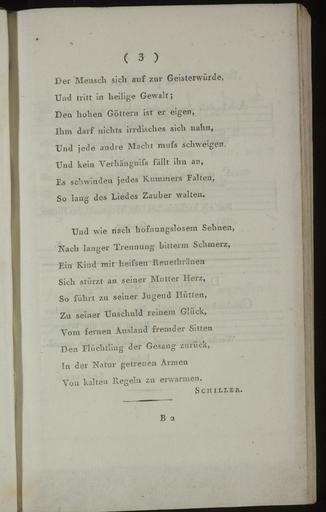 ( 3 )
Der Mensch sich auf zur Geisterwürde,
Und tritt in heilige Gewalt;
Den hohen Göttern ist er eigen,
Ihm darf nichts irrdisches sich nahn,
Und jede andre Macht muſs schweigen,
Und kein Verhängniſs fällt ihn an,
Es schwinden jedes Kummers Falten,
So lang des Liedes Zauber walten.
Und wie nach hofnungslosem Sehnen,
Nach langer Trennung bitterm Schmerz,
Ein Kind mit heiſsen Reuethränen
Sich stürzt an seiner Mutter Herz,
So führt zu seiner Jugend Hütten,
Zu seiner Unschuld reinem Glück,
Vom fernen Ausland fremder Sitten
Den Flüchtling der Gesang zurück,
In der Natur getreuen Armen
Von kalten Regeln zu erwarmen.
SCHILLER.
B 2